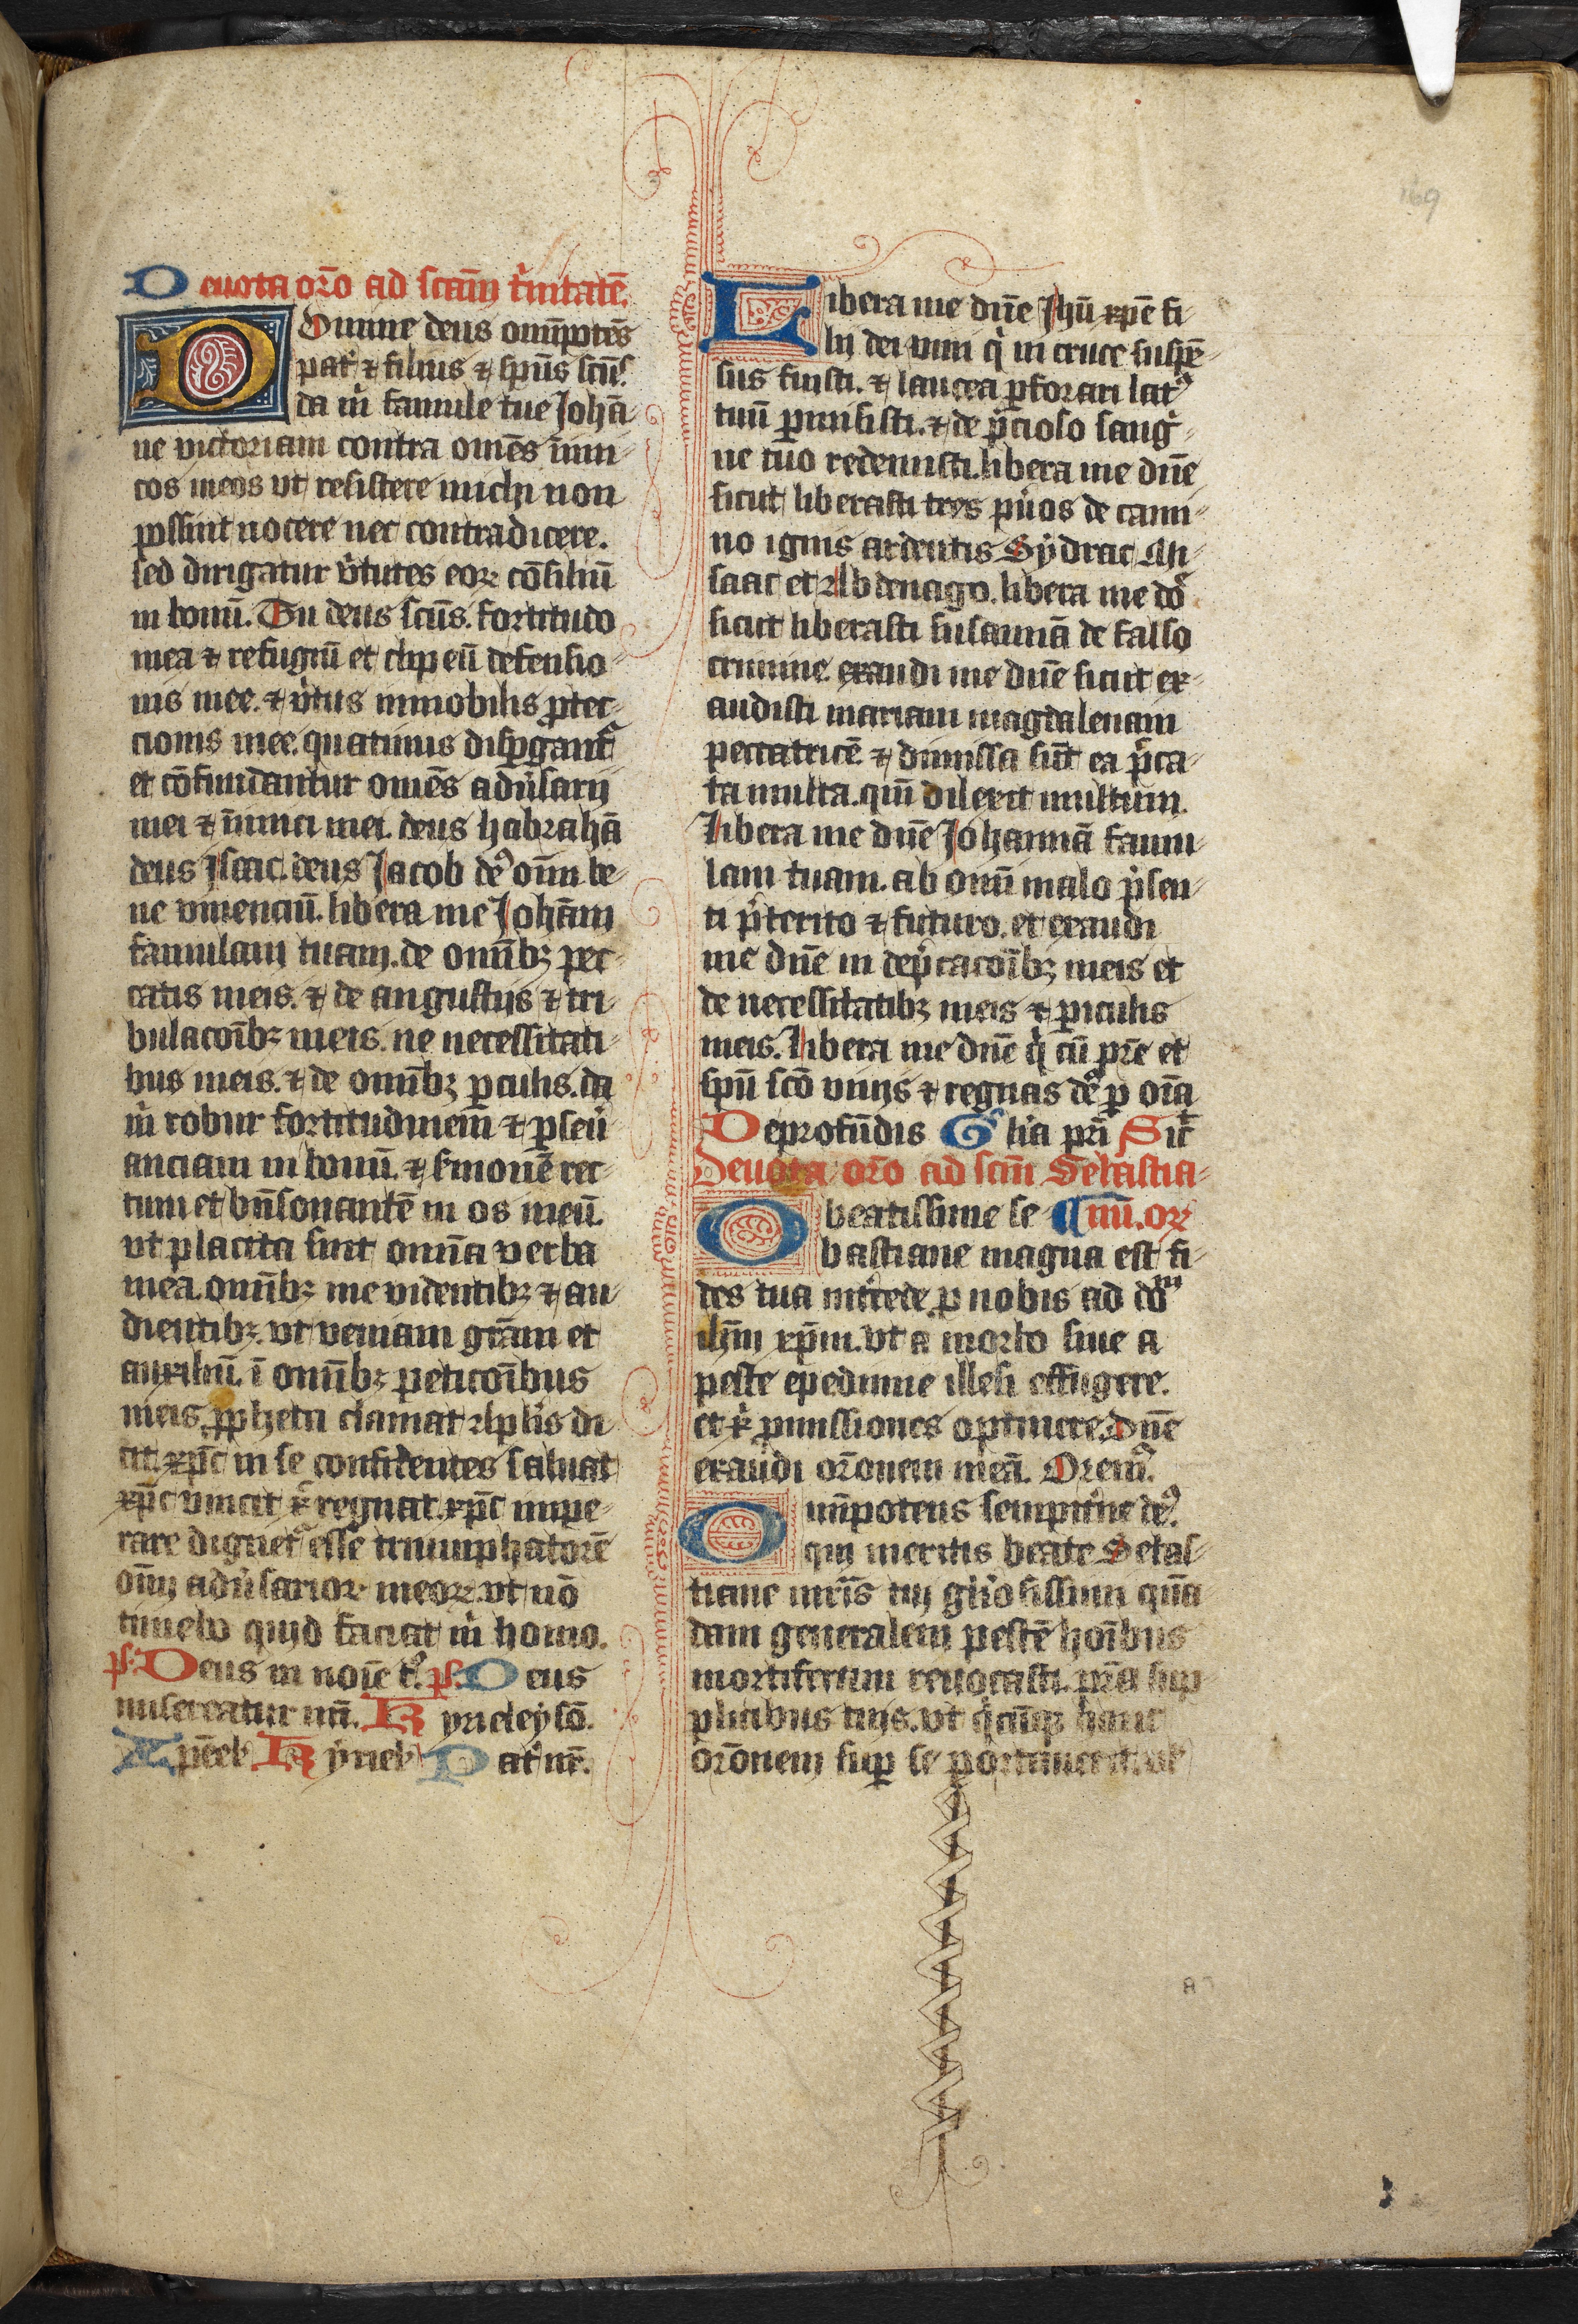 169
Deuota oro̅ ad scam̅ tʼnitate̅.
Domine deus omp̅ote̅s
patʼ ⁊ filius ⁊ spu̅s scu̅s.
da mʼ famule tue Joha̅-
ne victoriam contra ome̅s inimi-
cos meos vt resistere michi non
possint nocere nec contradicere.
sed dirigatur vʼtutes eorꝝ co̅siliu̅
in bonu̅. Tu deus scu̅s. fortitudo
mea ⁊ refugiu̅ et clipeu̅ defensio-
nis mee. ⁊ vʼtus inmobilis ꝓtec-
cionis mee. quatinus disꝑgantʼ
et co̅fundantur ome̅s aduʼsarij
mei ⁊ inimici mei. deus habraha̅
deus Jsaac. deus Jacob deꝰ om̅i be-
ne viuenciu̅. libera me Joha̅m
famulam tuam. de omi̅bꝫ pec-
catis meis. ⁊ de angustijs ⁊ tri-
bulacoi̅bꝫ meis. ne necessitati-
bus meis. ⁊ de omi̅bꝫ ꝑiculis. da
mʼ robur fortitudinem̅ ⁊ ꝑseuʼ
anciam in bonu̅. ⁊ sʼmone̅ rec-
tum et bn̅sonante̅ in os meu̅.
vt placita sint omi̅a verba
mea. omi̅bꝫ me videntibꝫ ⁊ au-
dientibꝫ. vt veniam gra̅m et
auxiliu̅. i̅ omi̅bꝫ peticoi̅bus
meis. ꝓpheta clamat. Apl̅us di-
cit. xpc̅ in se confidentes saluat
xpc̅ vincit xpc̅ regnat. xpc̅ impe-
rare dignetʼ esse triumphatore̅
om̅i aduʼsariorꝝ meorꝝ. vt no̅
timebo quid faciat mʼ homo.
ps. Deus in noi̅e t. ps. Deus
misereatur nr̅i. Kyrieleyso̅.
Xpe̅el. Kyriel. Patʼ nr̅.
Libera me dn̅e Jhu̅ xpe̅ fi-
lij dei viui qʼ in cruce suspe̅-
sus fuisti. ⁊ lancea ꝑforari latꝰ
tuu̅ ꝑmisisti. ⁊ de pʼcioso sangʼ-
ne tuo redemisti. libera me dn̅e
sicut liberasti tres puʼos de cami-
no ignis ardentis Sydrac Mi-
saac et Abdenago. libera me do̅
sicut liberasti susanna̅ de falso
crimine. exaudi me dn̅e sicut ex-
audisti mariam magdalenam
peccatrice̅ ⁊ dimissa su̅t ea pʼcca-
ta multa. qm̅ dilexit multum.
Libera me dn̅e Johanna̅ famu-
lam tuam. ab omi̅ malo pʼsen-
ti pʼterito ⁊ futuro. et exaudi
me dn̅e in depʼcacoi̅bꝫ meis et
de necessitatibꝫ meis ⁊ ꝑiculis
meis. Libera me dn̅e qʼ cu̅ pr̅e et
spu̅ sco̅ viuis ⁊ regnas deꝰ ꝑ oi̅a
Deprofu̅dis Gʼlia pr̅i Sic̅t
Deuota oro̅ ad scm̅ Sebastia-
O beatissime se- ¶ nu̅. or
bastiane magna est fi-
des tua intʼcede ꝓ nobis ad do̅ᵐ
ihm̅ xpm̅. vt a morbo siue a
peste epedimie illesi effugere.
et xʼ ꝓmissiones optinere. Dn̅e
exaudi oro̅nem mea̅. Oremꝰ.
Omi̅potens sempitʼne deꝰ.
qui meritis beate Sebas-
tiane mr̅is tui glʼiosissimi qua̅
dam generalem peste̅ hoi̅bus
mortiferam reuocasti. pr̅a sup-
plicibus tuis. vt qʼcu̅qꝫ hanc
oro̅nem suꝑ se portauerit. vel